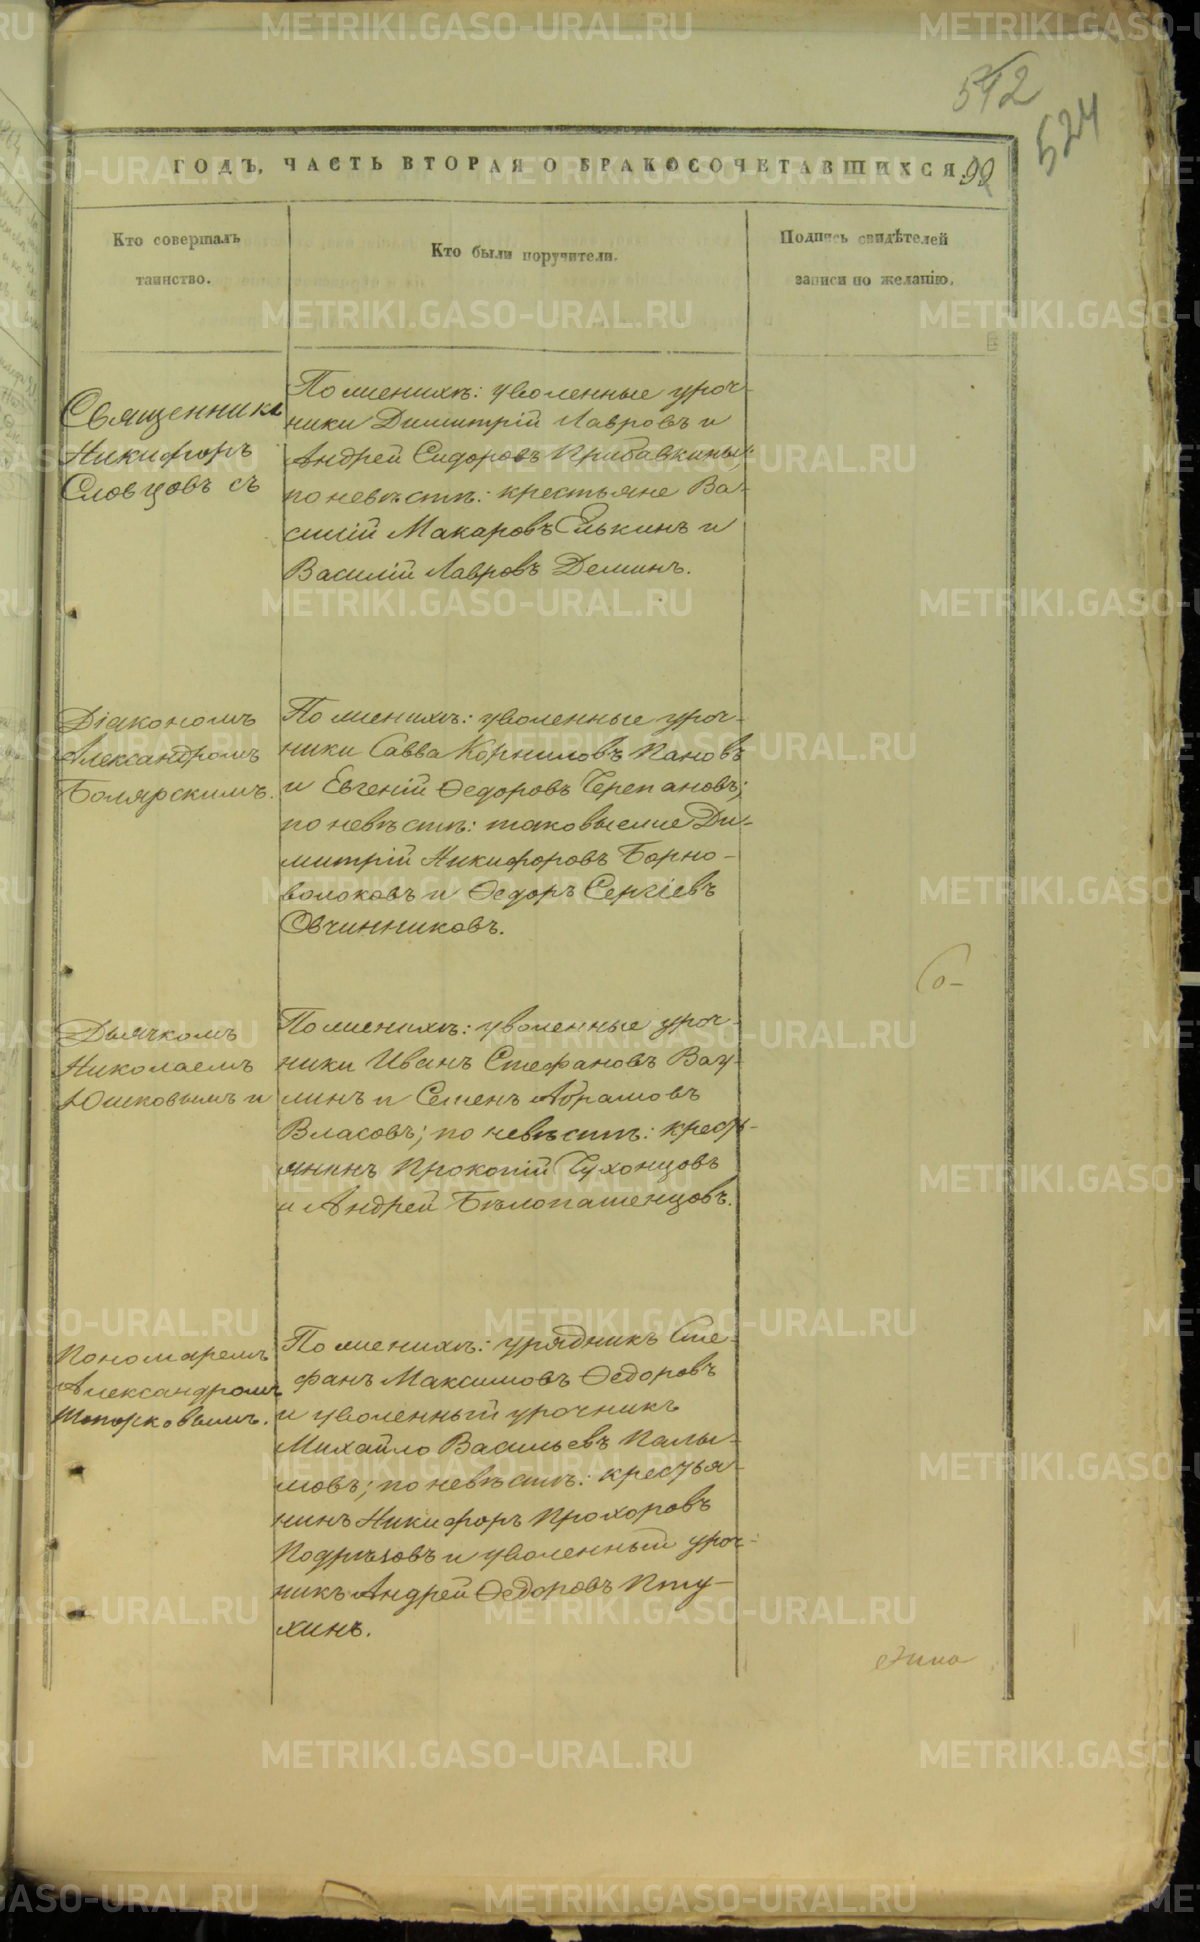 542
524
ГОДЪ, ЧАСТЬ ВТОРАЯ О БРАКОСОЧЕТАВШИХСЯ. 99
Кто совершалъ
таинство.
Кто были поручители.
Подпись свидѣтелей
записи по желанію.
Священникъ
Никифоръ
Словцовъ съ
По женихѣ: уволенные уроч-
ники Димитрій Лавровъ и
Андрей Сидоровъ Прибавкины;
по невѣстѣ: крестьяне Ва-
силій Макаровъ Елькинъ и
Василій Лавровъ Деминъ.
Діакономъ
Александромъ
Болярскимъ.
По женихѣ: уволенные уроч-
ники Савва Корниловъ Пановъ
и Евгеній Ѳедоровъ Черепановъ;
по невѣстѣ: таковыеже Ди-
митрій Никифоровъ Борно-
волоковъ и Ѳедоръ Сергіевъ
Овчинниковъ.
Дьячкомъ
Николаемъ
Юшковымъ и
По женихѣ: уволенные уроч-
ники Иванъ Стефановъ Вау-
линъ и Семенъ Абрамовъ
Власовъ; по невѣстѣ: кресть-
янинъ Прокопій Чухонцовъ
и Андрей Бѣлопашенцовъ.
Пономаремъ
Александромъ
Топорковымъ.
По женихѣ: урядникъ Сте-
фанъ Максимовъ Ѳедоровъ
и уволенный урочникъ
Михайло Васильевъ Палы-
мовъ; по невѣстѣ: крестья-
нинъ Никифоръ Прохоровъ
Подрѣзовъ и уволенный уроч-
никъ Андрей Ѳедоровъ Пту-
хинъ.
METRIKI.GASO-URAL.RU